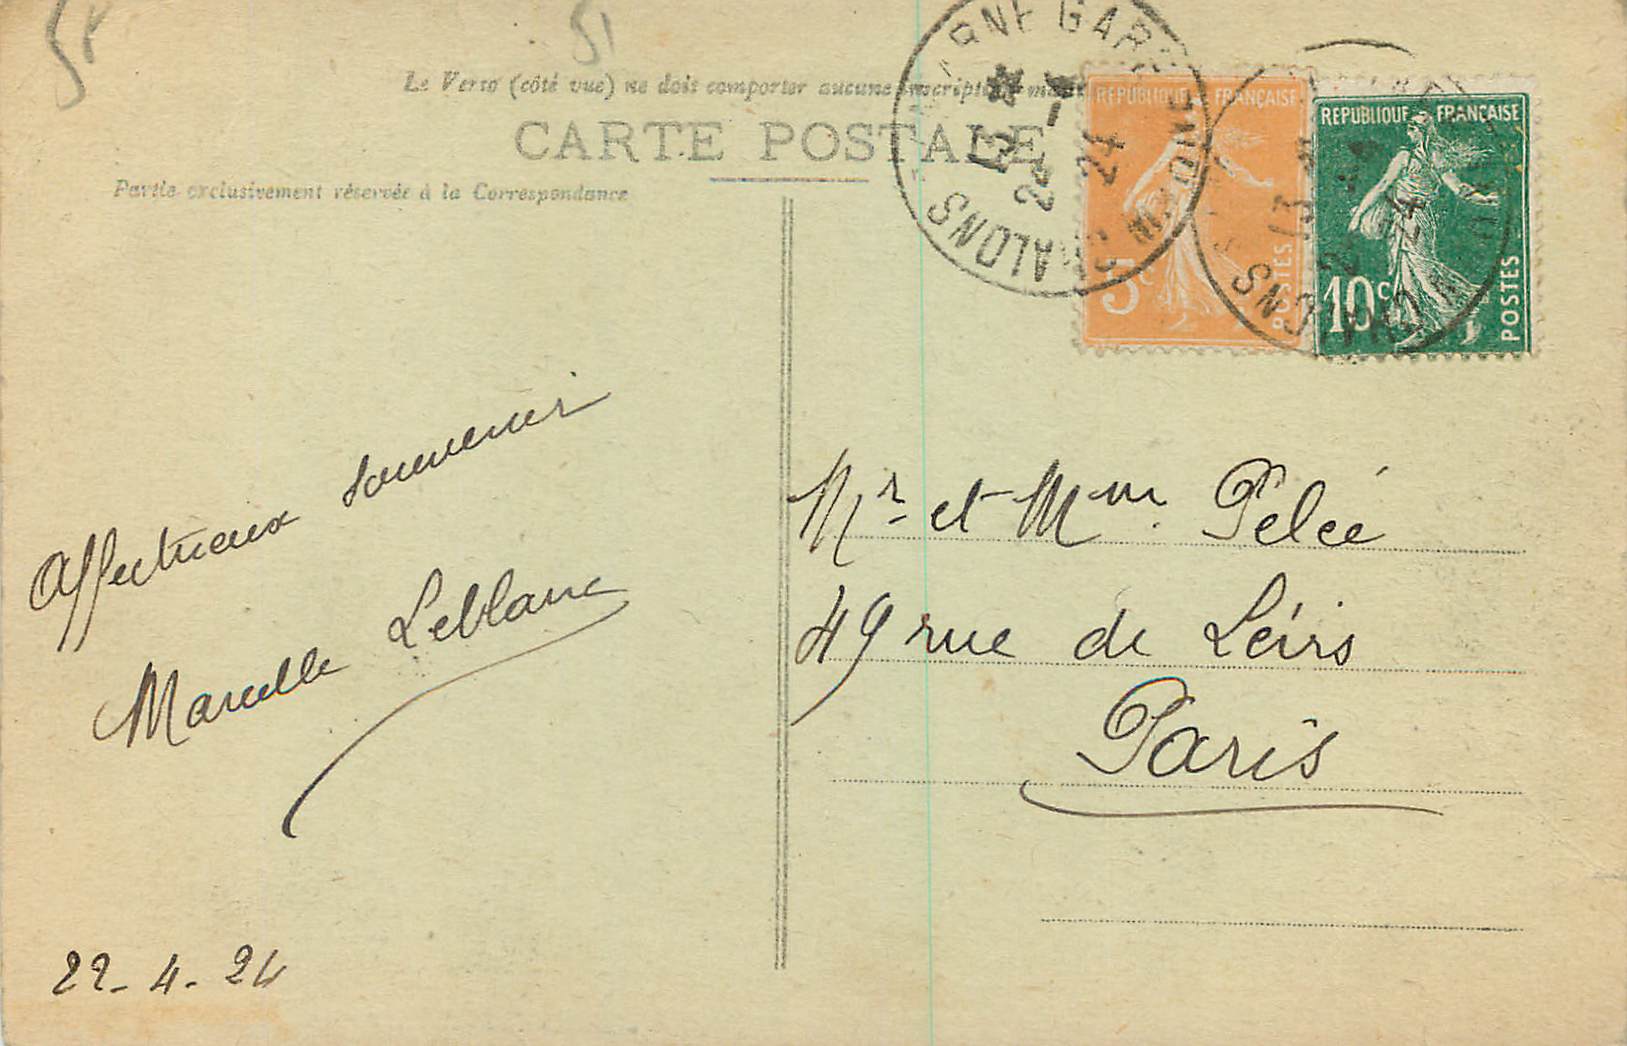 51
51
Le Verso (côté vue) ne doit comporter aucune inscription
CARTE POSTALE
Partie exclusivement réservée à la Correspondance
MARNE GARE
CHALONS MARNE
13
22 -4
24
RÉPUBLIQUE FRANÇAISE
5c
POSTES
RÉPUBLIQUE FRANÇAISE
10c
POSTES
Affectueux souvenir
Marcelle Leblanc
22-4-24
Mr et Mme Pelée
49 rue de Lévis
Paris